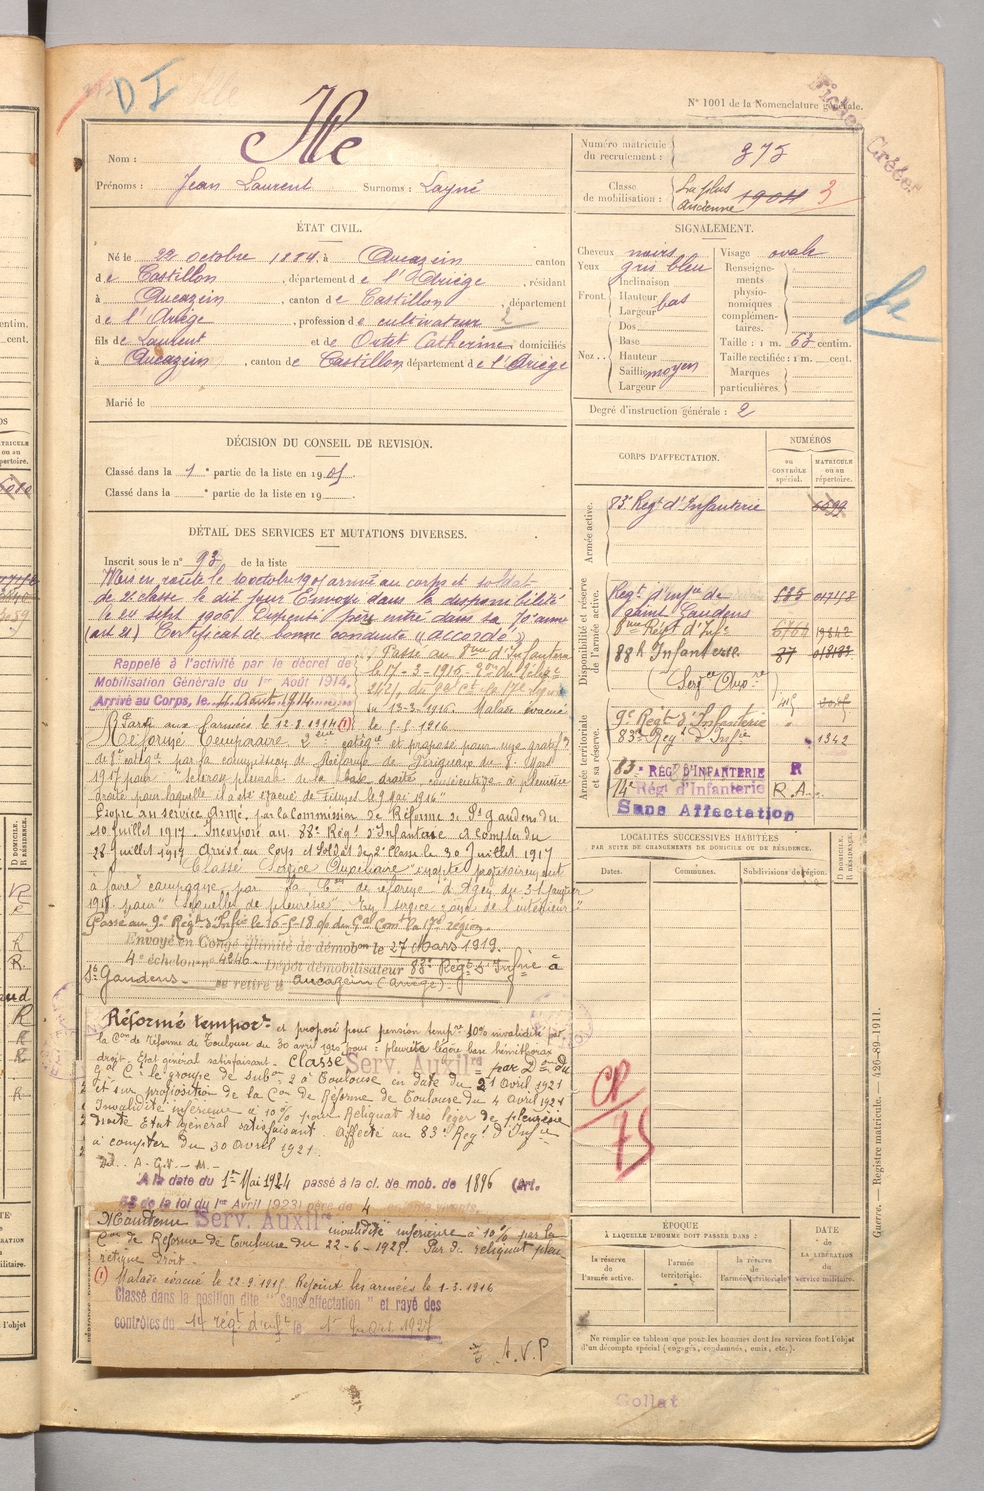 D I
N° 1001 de la Nomenclature générale.
Fiches Créées
Nom : Ille
Prénoms : Jean Laurent Surnoms : Layné
Numéro matricule du recrutement : 375
Classe de mobilisation : La plus ancienne 1904 3
ÉTAT CIVIL.
Né le 22 octobre 1884, à Aucazein canton
de Castillon, département de l'Ariège, résidant
à Aucazein, canton de Castillon, département
de l'Ariège, profession de cultivateur 2
fils de Laurent et de Ortet Catherine domiciliés
à Aucazein, canton de Castillon département de l'Ariège
Marié le
SIGNALEMENT.
Cheveux noirs
Yeux gris bleu
Front Inclinaison
Hauteur bas
Largeur
Nez Dos
Base
Hauteur
Saillie moyen
Largeur
Visage ovale
Renseignements physionomiques complémentaires.
Taille : 1 m. 63 centim.
Taille rectifiée : 1 m. cent.
Marques particulières.
Degré d'instruction générale : 2
DÉCISION DU CONSEIL DE REVISION.
Classé dans la 1e partie de la liste en 1905
Classé dans la e partie de la liste en 19
DÉTAIL DES SERVICES ET MUTATIONS DIVERSES.
Inscrit sous le n° 93 de la liste
Mis en route le 10 octobre 1905 arrivé au corps et soldat
de 2e classe le dit jour Envoyé dans la disponibilité
le 24 sept 1906 Dispensé père entré dans sa 70e année
(art 21) Certificat de bonne conduite "accordé"
Rappelé à l'activité par le décret de
Mobilisation Générale du 1er Août 1914.
Arrivé au Corps, le 4 Août 1914
Passé au 8eme d'Infanterie
le 17-3-1916.
du 13-3-1916. Malade évacué
le 5-5-1916
Parti aux armées le 12.8.1914 (1)
Réformé Temporaire 2eme catégie et proposé pour une gratif on
de 8e catégie par la commission de Réforme de Périgueux du 8 Mars
1917 pour "sclérose pleurale de la base droite consécutive à pleurésie
droite pour laquelle il a été évacué de Fismes le 9 Mai 1916"
Propre au service Armé par la Commission de Réforme de St Gaudens du
10 juillet 1917. Incorporé au 88e Régt d'Infanterie à compter du
28 juillet 1917 Arrivé au Corps et Soldat de 2e Classe le 30 Juillet 1917
Classé Service Auxiliaire "inapte provisoirement
à faire" campagne par la Con de réforme d'Agen du 31 janvier
1918 pour "séquelles de pleurésie".
Passé au 9e Régt d'Infie le 16-5-18
Envoyé en Congé illimité de démobon le 27 Mars 1919.
4e échelon n° 4246. Dépôt démobilisateur 83e Régt d'Infie à
St Gaudens. se retire à Aucazein (Ariège).
Réformé tempore et proposé pour pension tempre 10% invalidité par
la Con de réforme de Toulouse du 30 avril 1919 pour : pleurite légère base hémithorax
droit. Etat général satisfaisant. Classé Serv. Auxilre par Don du
Gal Ct le groupe de subon 2 à Toulouse en date du 21 Avril 1921
et sur proposition de la Con de Réforme de Toulouse du 4 Avril 1921
Invalidité inférieure à 10% pour Reliquat très léger de pleurésie
droite Etat général satisfaisant. Affecté au 83e Régt d'Infie
à compter du 30 Avril 1921.
A la date du 1er Mai 1924 passé à la cl. de mob. de 1896 (Art.
58 de la loi du 1er Avril 1923) père de 4 enfants vivants.
Maintenu Serv. Auxilre invalidité inférieure à 10% par la
Con de Réforme de Toulouse du 22-6-1925. Par de reliquat pleu
rétique droit.
(1) Malade évacué le 22.9.1915. Rejoint les armées le 1-3-1916
Classé dans la position dite "Sans affectation" et rayé des
contrôles du 14 régt d'infie le
A.V.P
CORPS D'AFFECTATION.
NUMÉROS
au CONTRÔLE spécial.
MATRICULE ou au répertoire.
Armée active.
83e Régt d'Infanterie 6699
Disponibilité et réserve de l'armée active.
Régt d'Infie de Saint Gaudens 885 01718
8eme Régt d'Infie 6764
88e Infanterie 37
(Serv. Auxre)
Armée territoriale et sa réserve.
9e Régt d'Infanterie
83e Régt d'Infie 1342
83e RÉGt D'INFANTERIE R
14e Régt d'Infanterie R.A.
Sans Affectation
LOCALITÉS SUCCESSIVES HABITÉES
PAR SUITE DE CHANGEMENTS DE DOMICILE OU DE RÉSIDENCE.
Dates. Communes. Subdivisions de région.
D DOMICILE. R RÉSIDENCE.
CP/75
ÉPOQUE
À LAQUELLE L'HOMME DOIT PASSER DANS :
la réserve de l'armée active.
l'armée territoriale.
la réserve de l'armée territoriale
DATE de LA LIBÉRATION du service militaire.
Ne remplir ce tableau que pour les hommes dont les services font l'objet
d'un décompte spécial (engagés, condamnés, omis, etc.).
Guerre. — Registre matricule. — 426-89-1911.
Gollat